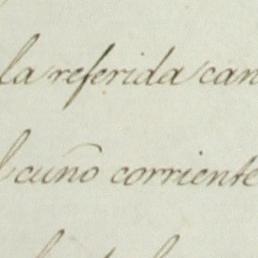 la referida can
l cuño corriente